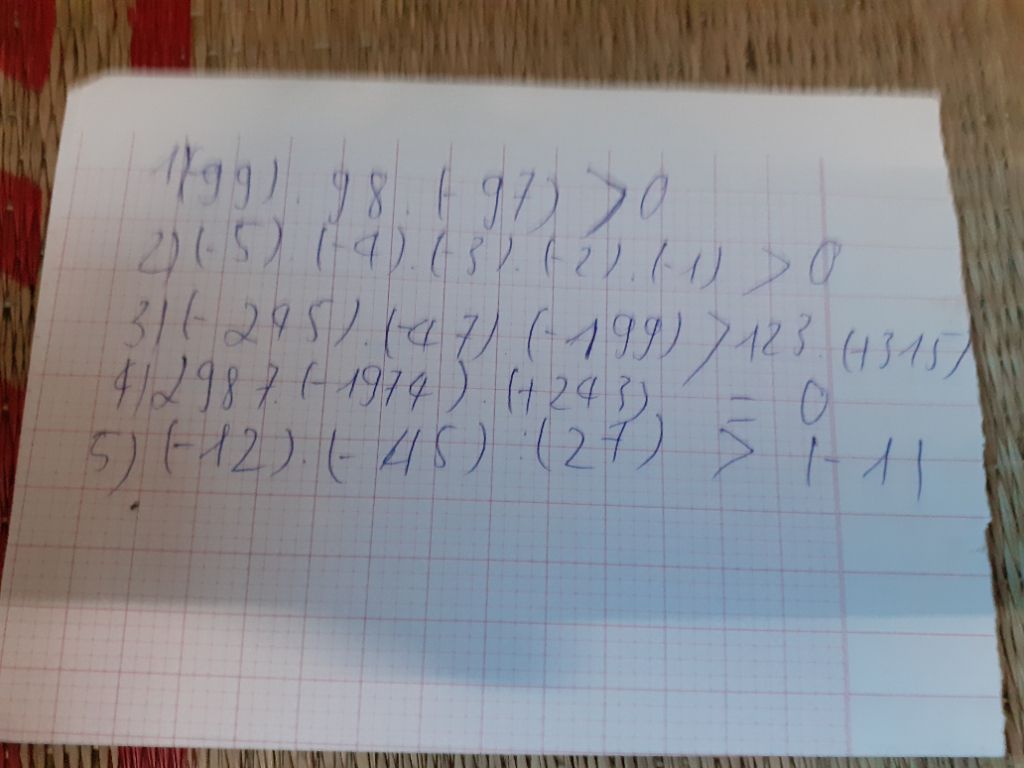 1)(-99). 98. (-97) > 0
2)(-5). (-4). (-3). (-2). (-1) > 0
3)(-245). (-47). (-199) > 123. (+315)
4)2987. (-1974). (+243) = 0
5) (-12). (-45) : (27) > |-1|